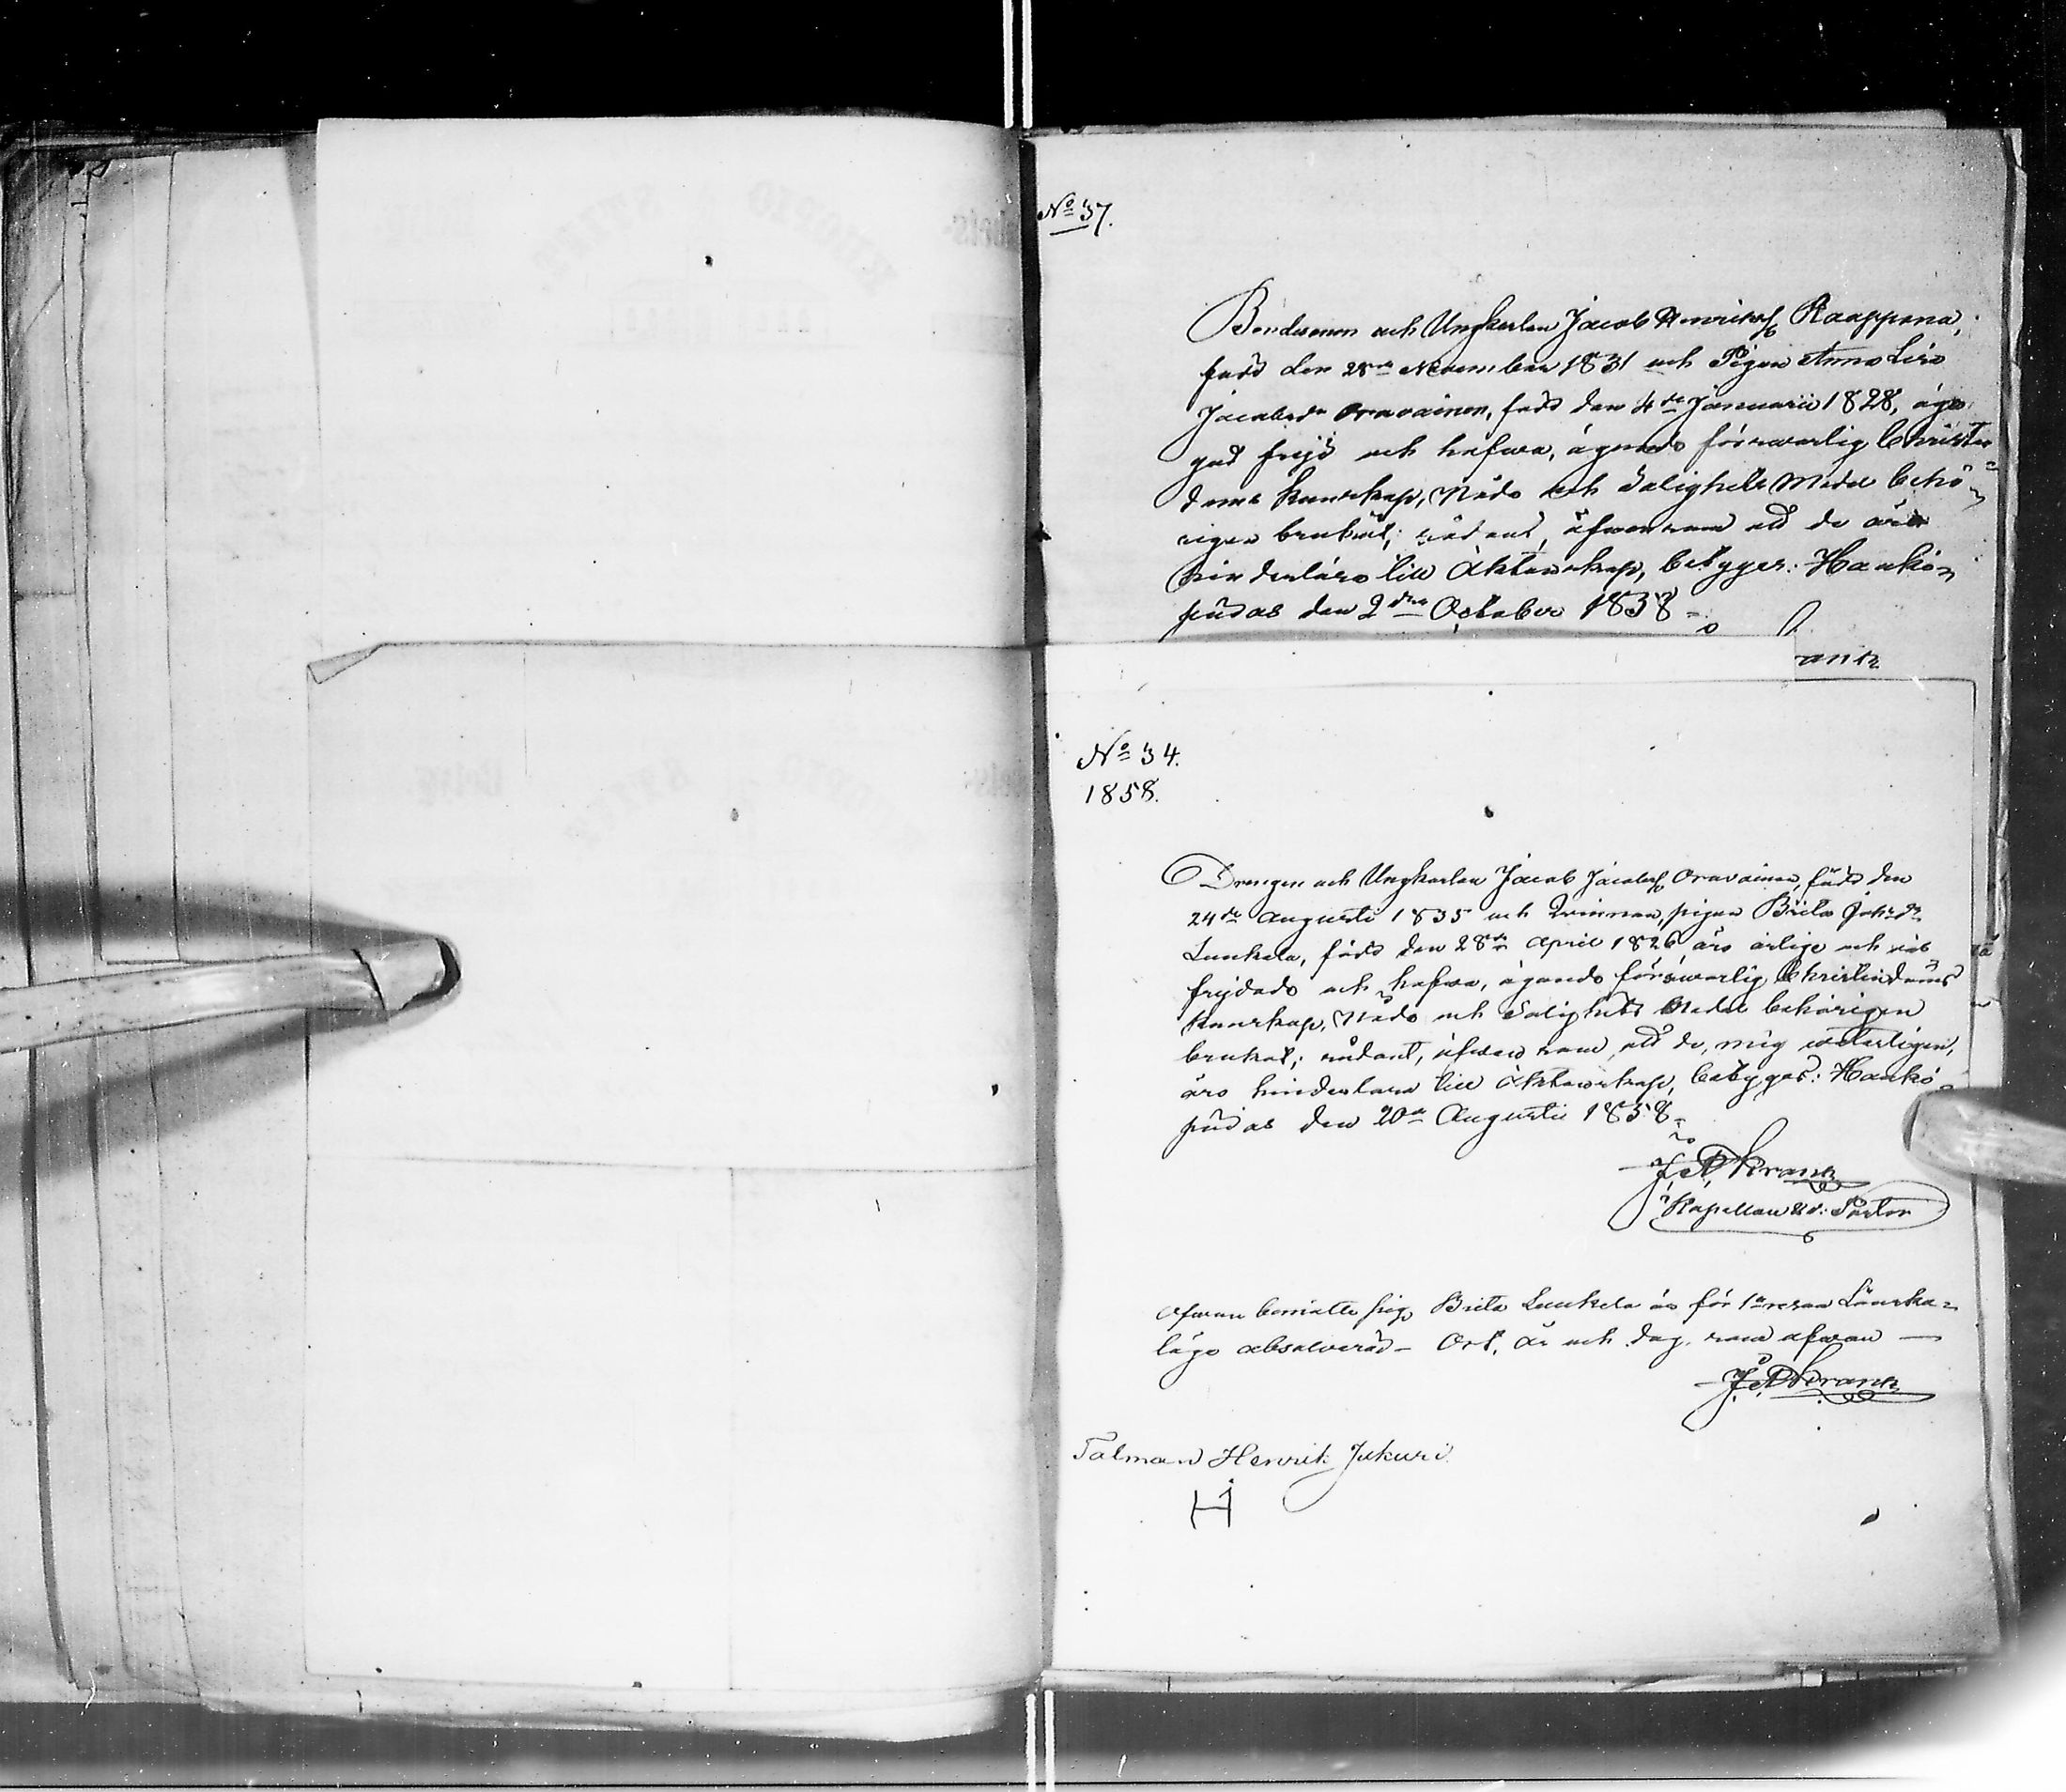 No 37.
Bondesonen och Ungkarlen Jacob Henriksf Kaappana,
född den 28de November 1831 och Pigan Anna Lisa
Jacobsdr Oravainen, född den 4de Januarii 1828, äga
god frejd och hafwa, ägande förswarlig Christen=
doms kunskap, Nåde och Salighets Medel behö=
rigen brukat; sådant, äfwensom att de äro
hinderlöse till Äktenskap, betygar: Haukö=
pudas den 2dra October 1858
anck
No 34.
1858.
Drengen och Ungkarlen Jacob Jacobsf Oravainen, född den
24de Augusti 1835 och Qvinnan, pigan Brita Johsdr
Luukela, född den 28de April 1826, äro ärlige och wäl
frejdade och hafwa, ägande förswarlig Christendoms
kunskap, Nåde och Salighets Medel behörigen
brukat; sådant, äfwen som att de, mig weterligen,
äro hinderlöse till Äktenskap, betygas: Haukö=
pudas den 20de Augusti 1858
Kapellan Vd: Pastor
Ofwan bemälte pig. Brita Luukela är för 1a resan Lönska=
läge absolverad – Ort, år och dag, som ofwan —
Talman Henrik Jukuri.
H